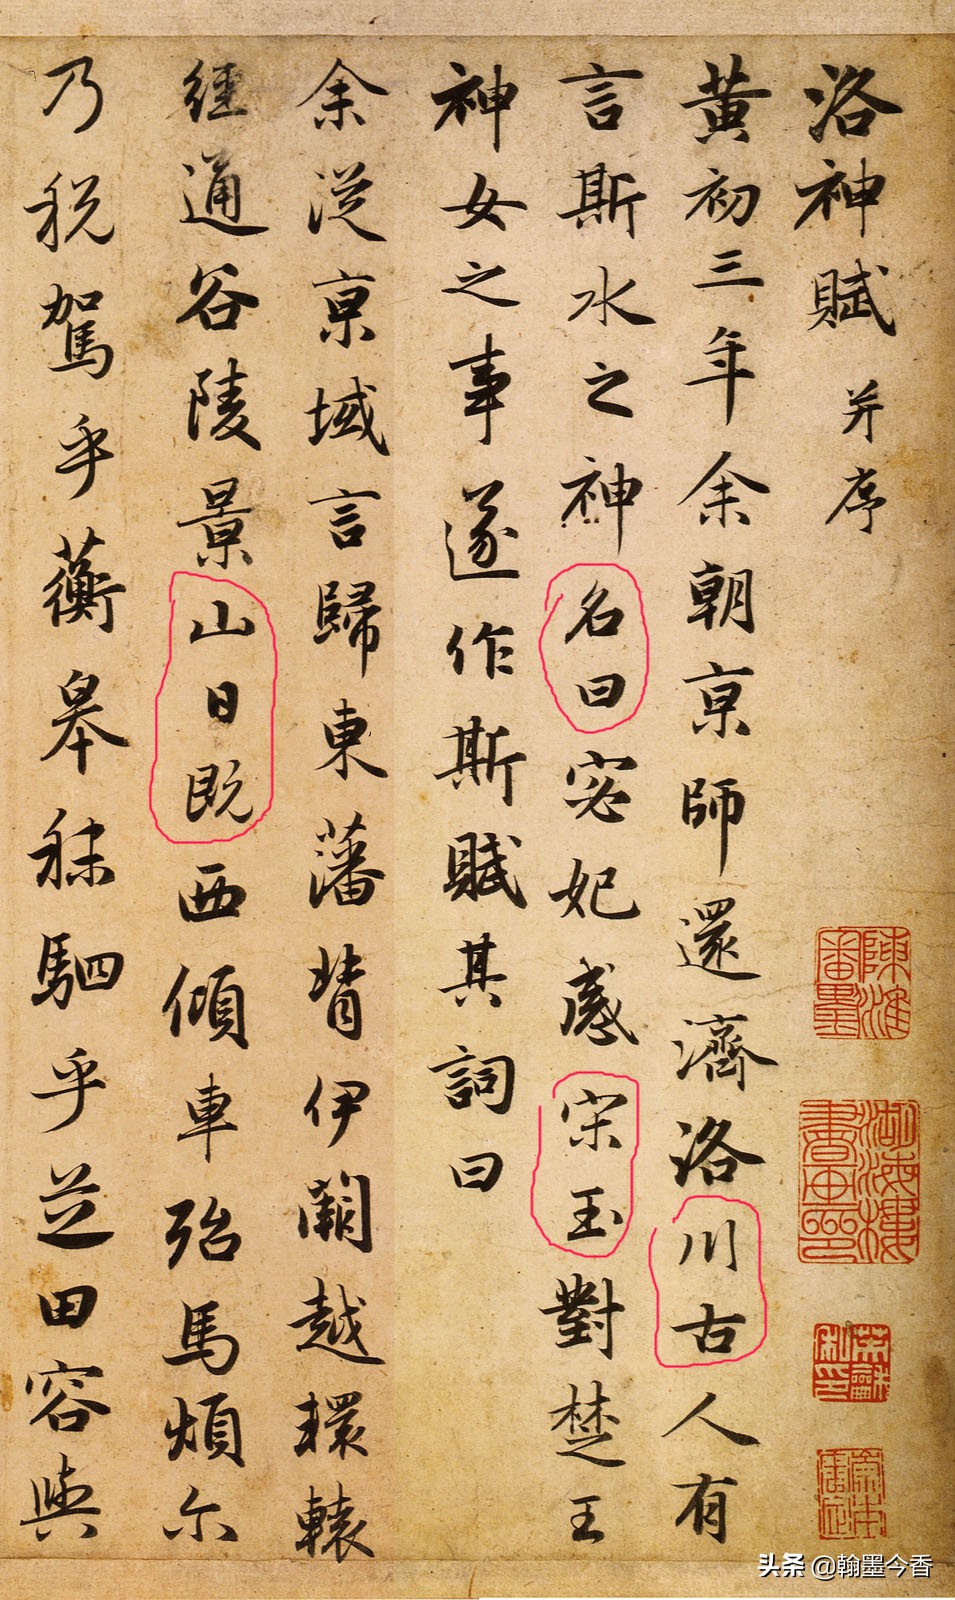 洛神賦 并序
黃初三年余朝京師還濟洛川古人有
言斯水之神名曰宓妃感宋玉對楚王
神女之事遂作斯賦其詞曰
余從京域言歸東藩背伊闕越轘轅
經通谷陵景山日既西傾車殆馬煩尔
乃税駕乎蘅皋秣駟乎芝田容與
頭条 @翰墨今香